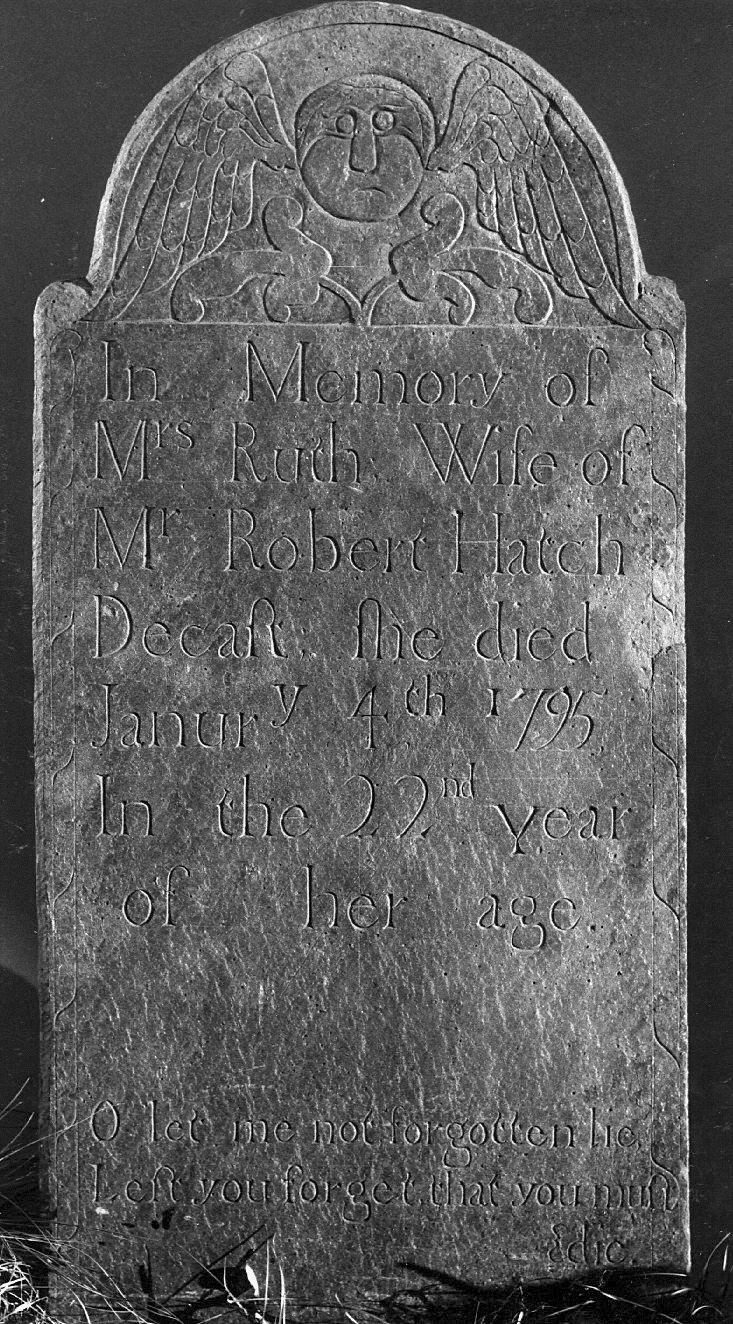 In Memory of
Mrs Ruth, Wife of
Mr Robert Hatch
Decaſt; ſhe died
Janury 4th 1795,
In the 22nd year
of her age.
O let me not forgotten lie,
Leſt you forget, that you muſt
die.